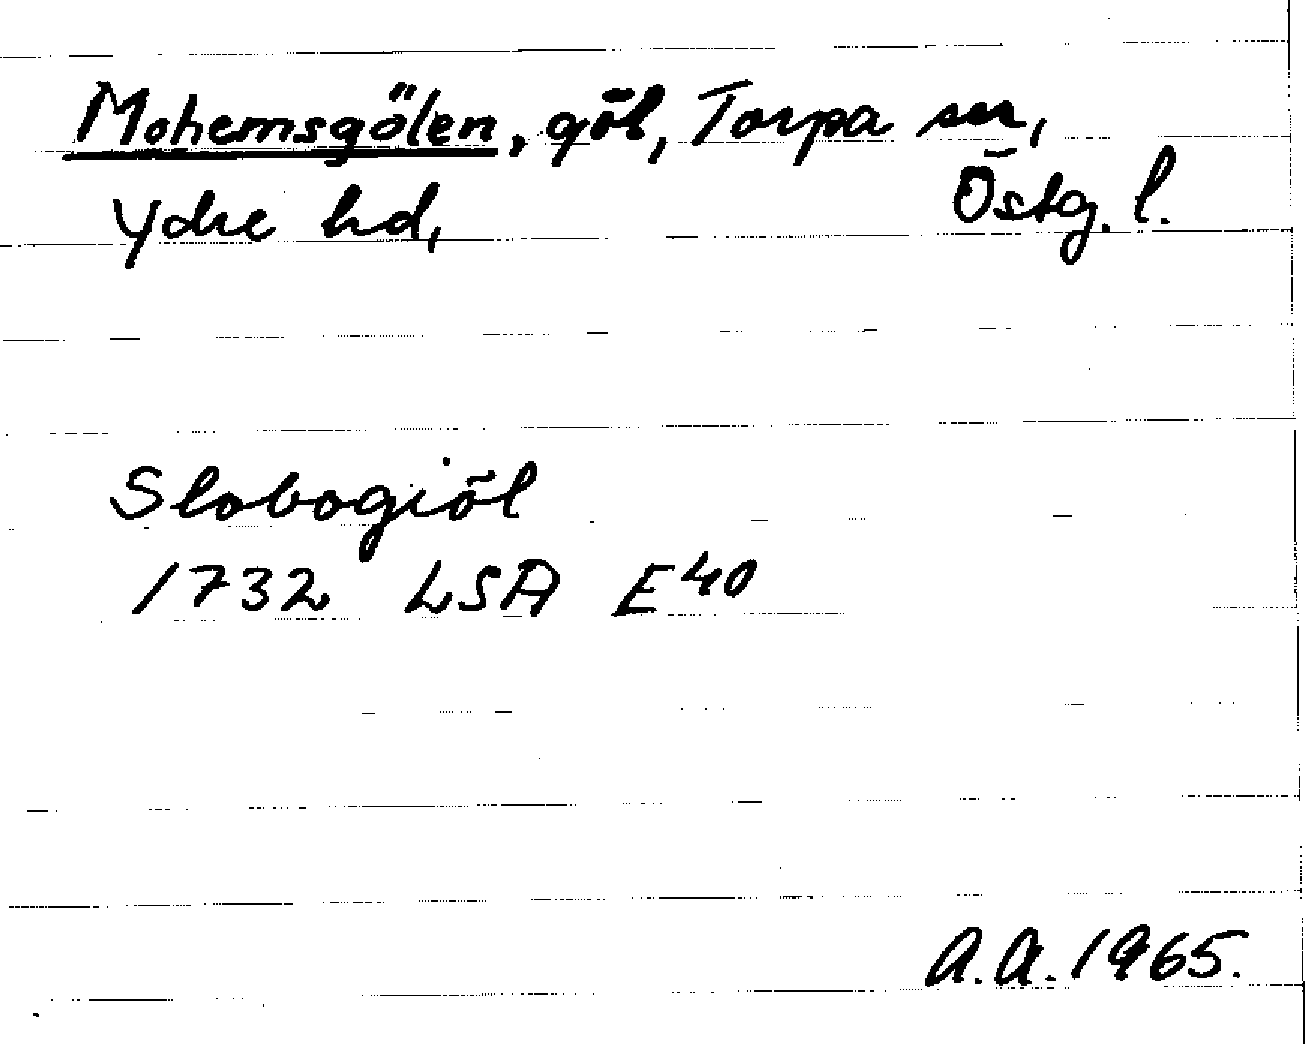 Mohemsgölen, göl, Torpa sn,
Ydre hd, Östg. l.
Slobogiöl
1732 LSA E40
A.A. 1965.